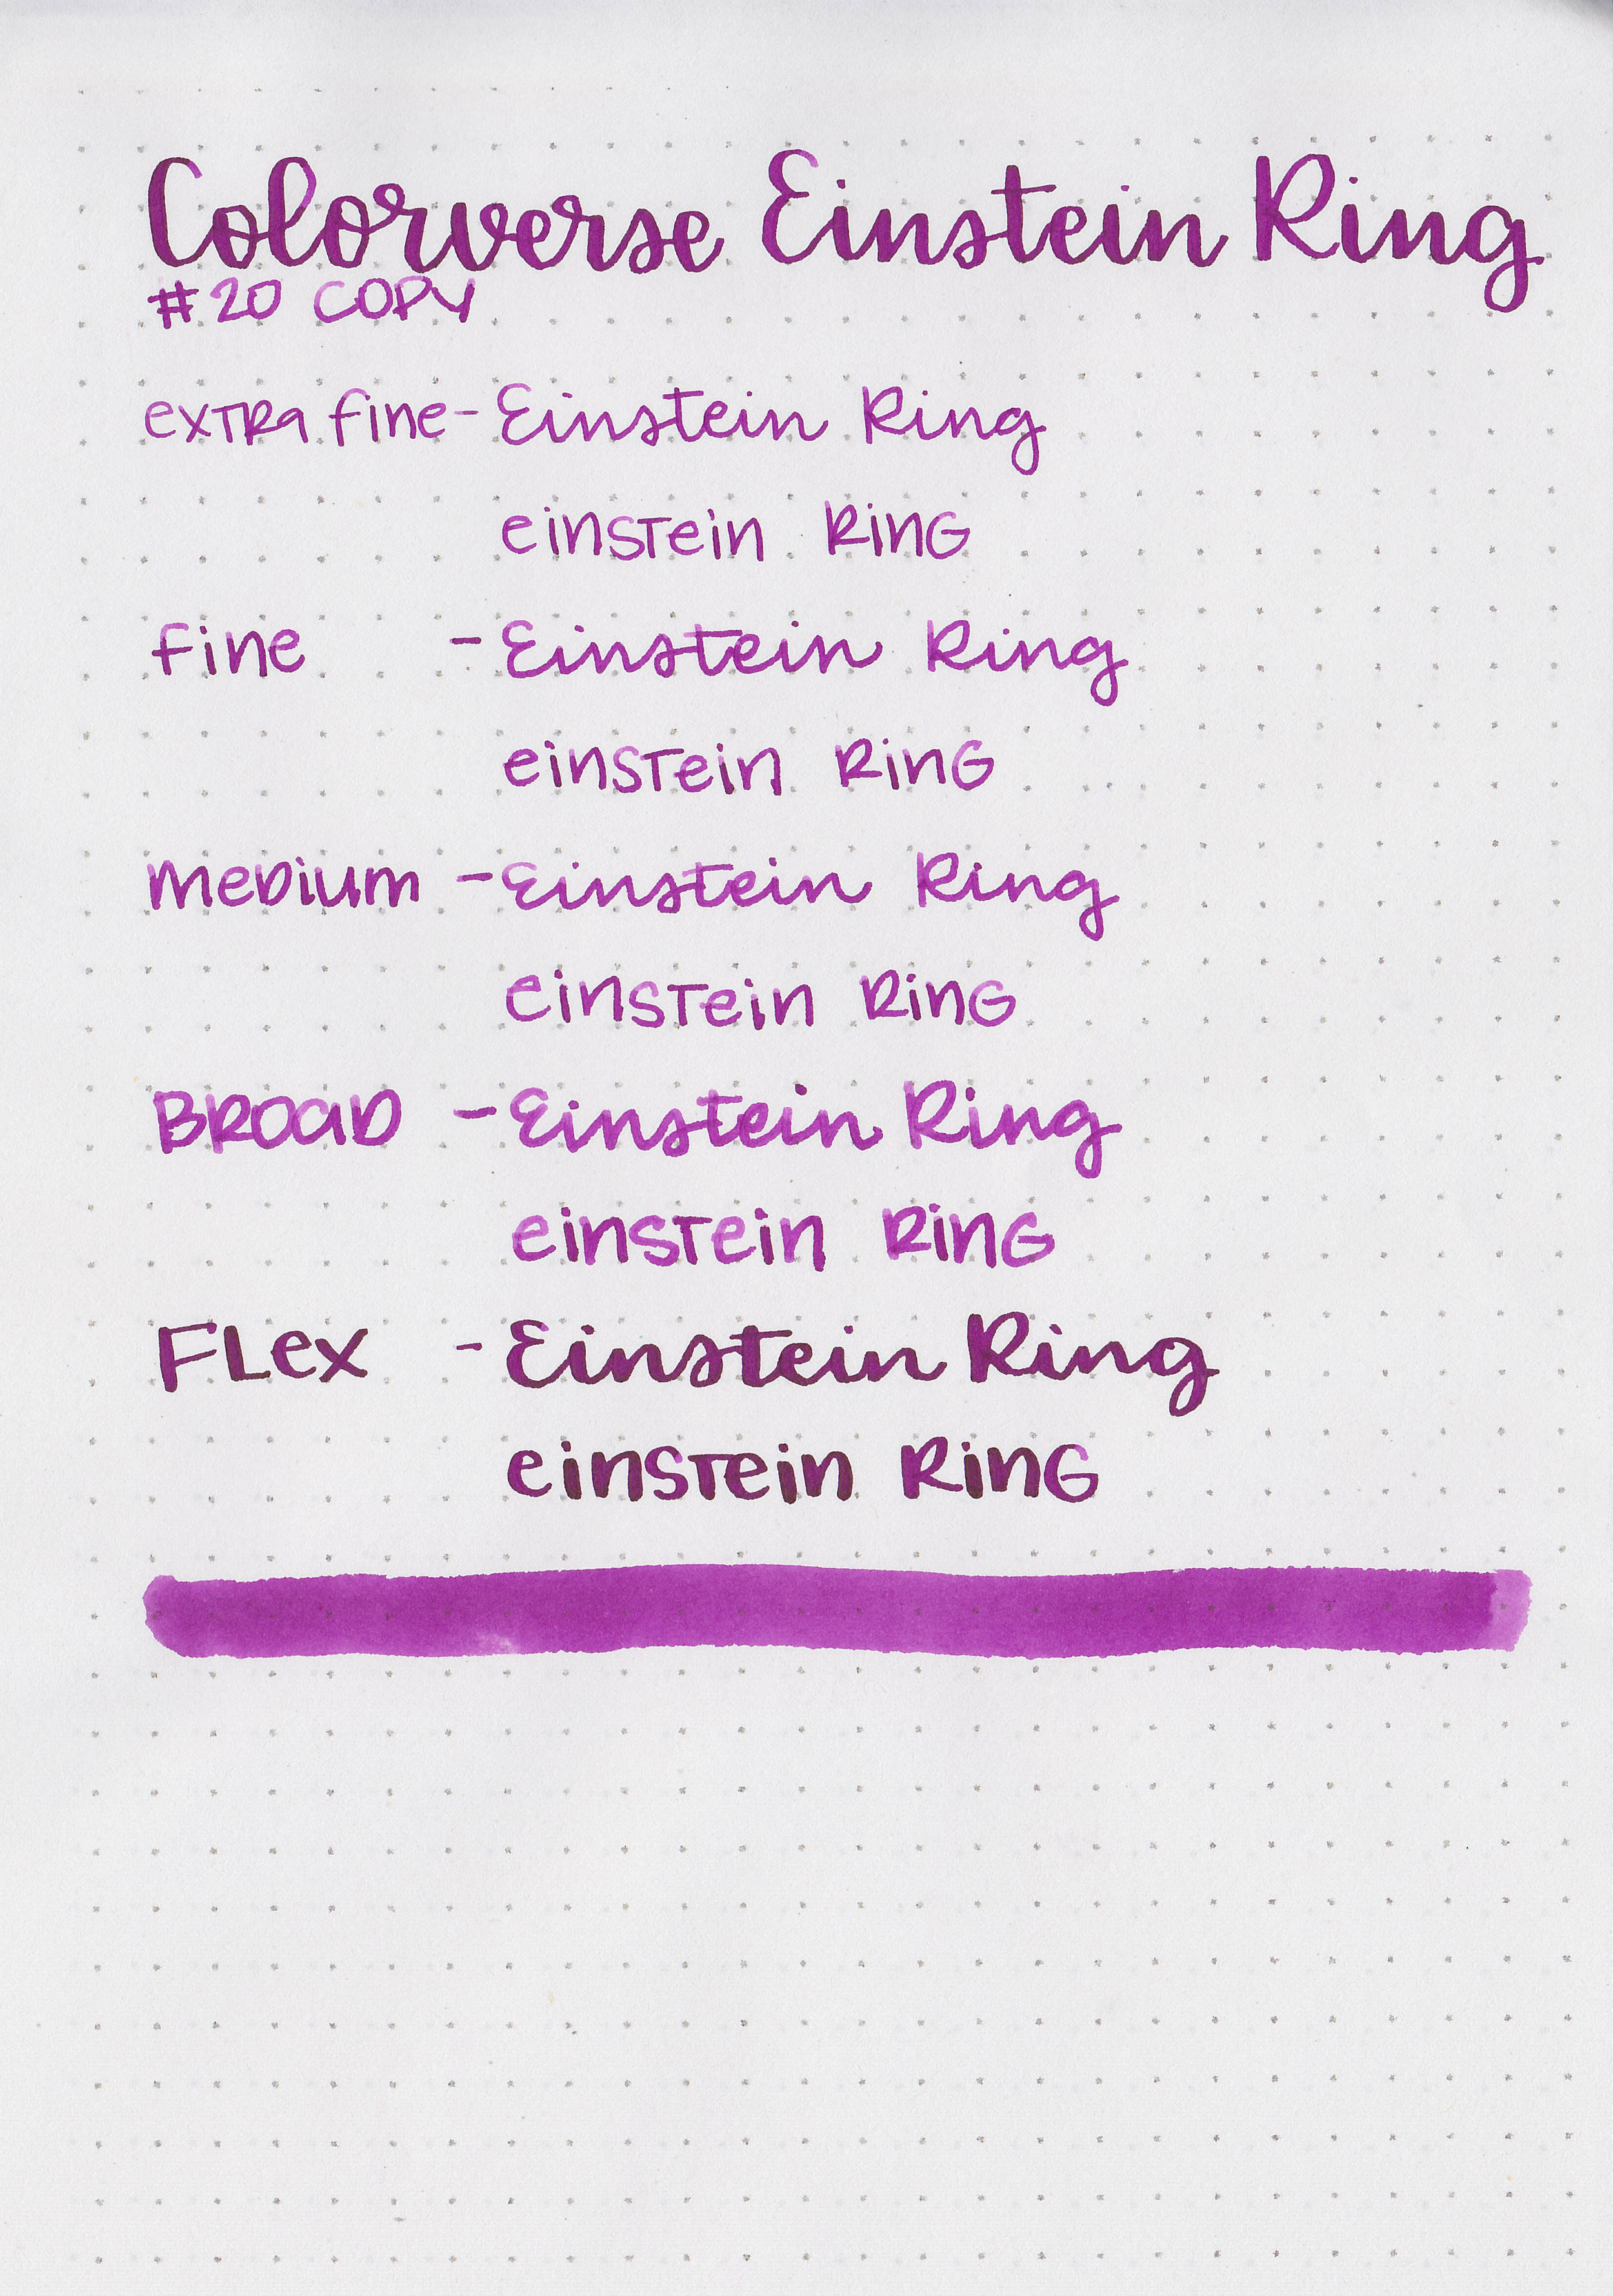 Colorverse Einstein Ring
#20 COPY
extra fine - Einstein Ring
einstein Ring
fine - Einstein Ring
einstein Ring
Medium - Einstein Ring
einstein Ring
Broad - Einstein Ring
einstein Ring
Flex - Einstein Ring
einstein Ring